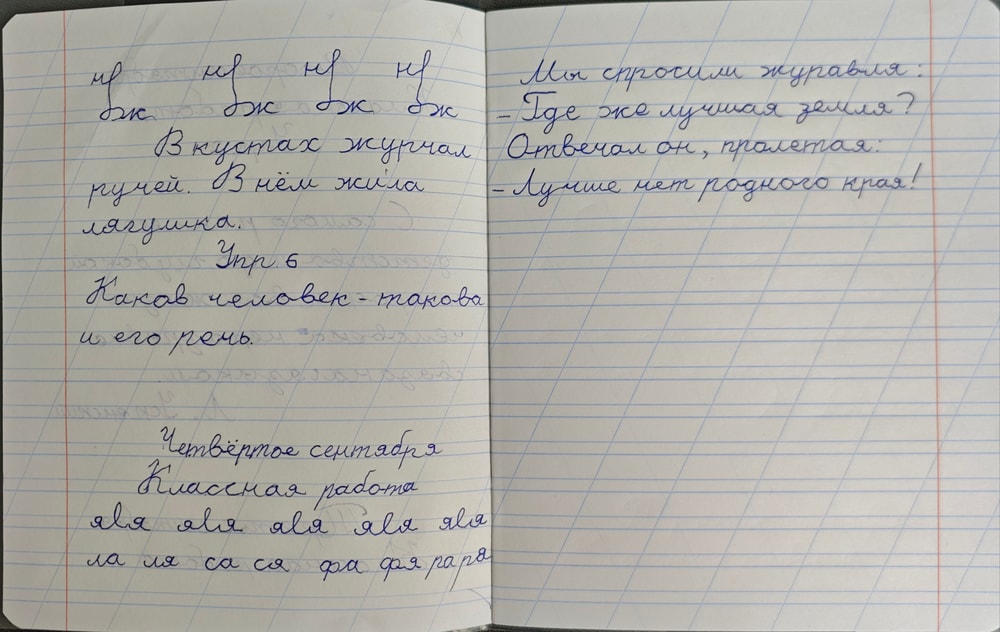 нф нф нф нф
бж бж бж бж
В кустах журчал
ручей. В нём жила
лягушка.
Упр. 6
Каков человек - такова
и его речь.
Четвёртое сентября
Классная работа
яля яля яля яля яля
ла ля са ся фа фя ра ря
Мы спросили журавля:
- Где же лучшая земля?
Отвечал он, пролетая:
- Лучше нет родного края!